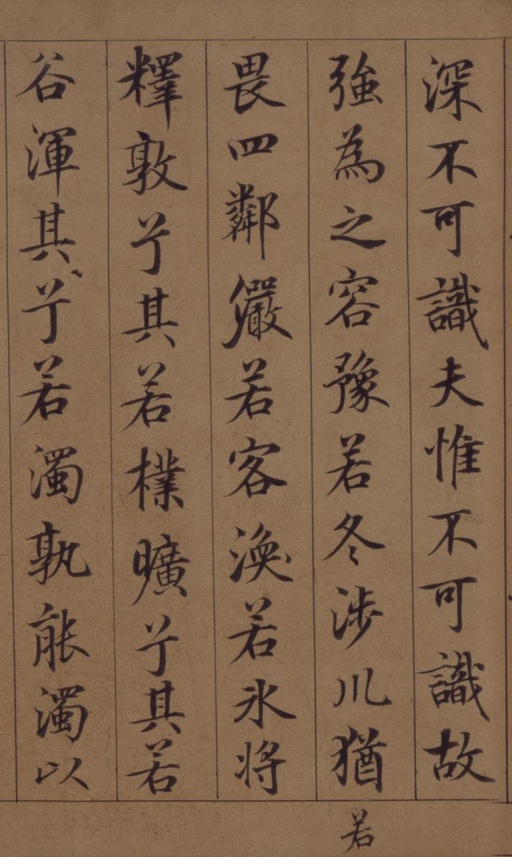 深不可識夫惟不可識故
強為之容豫若冬涉川猶
若
畏四鄰儼若客渙若氷将
釋敦兮其若樸曠兮其若
谷渾其兮若濁孰能濁以